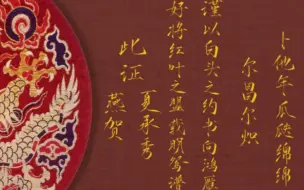 卜他年瓜瓞绵绵
尔昌尔炽
谨以白头之约书向鸿
好将红叶之盟载明鸳谱
此证
夏承秀
燕贺